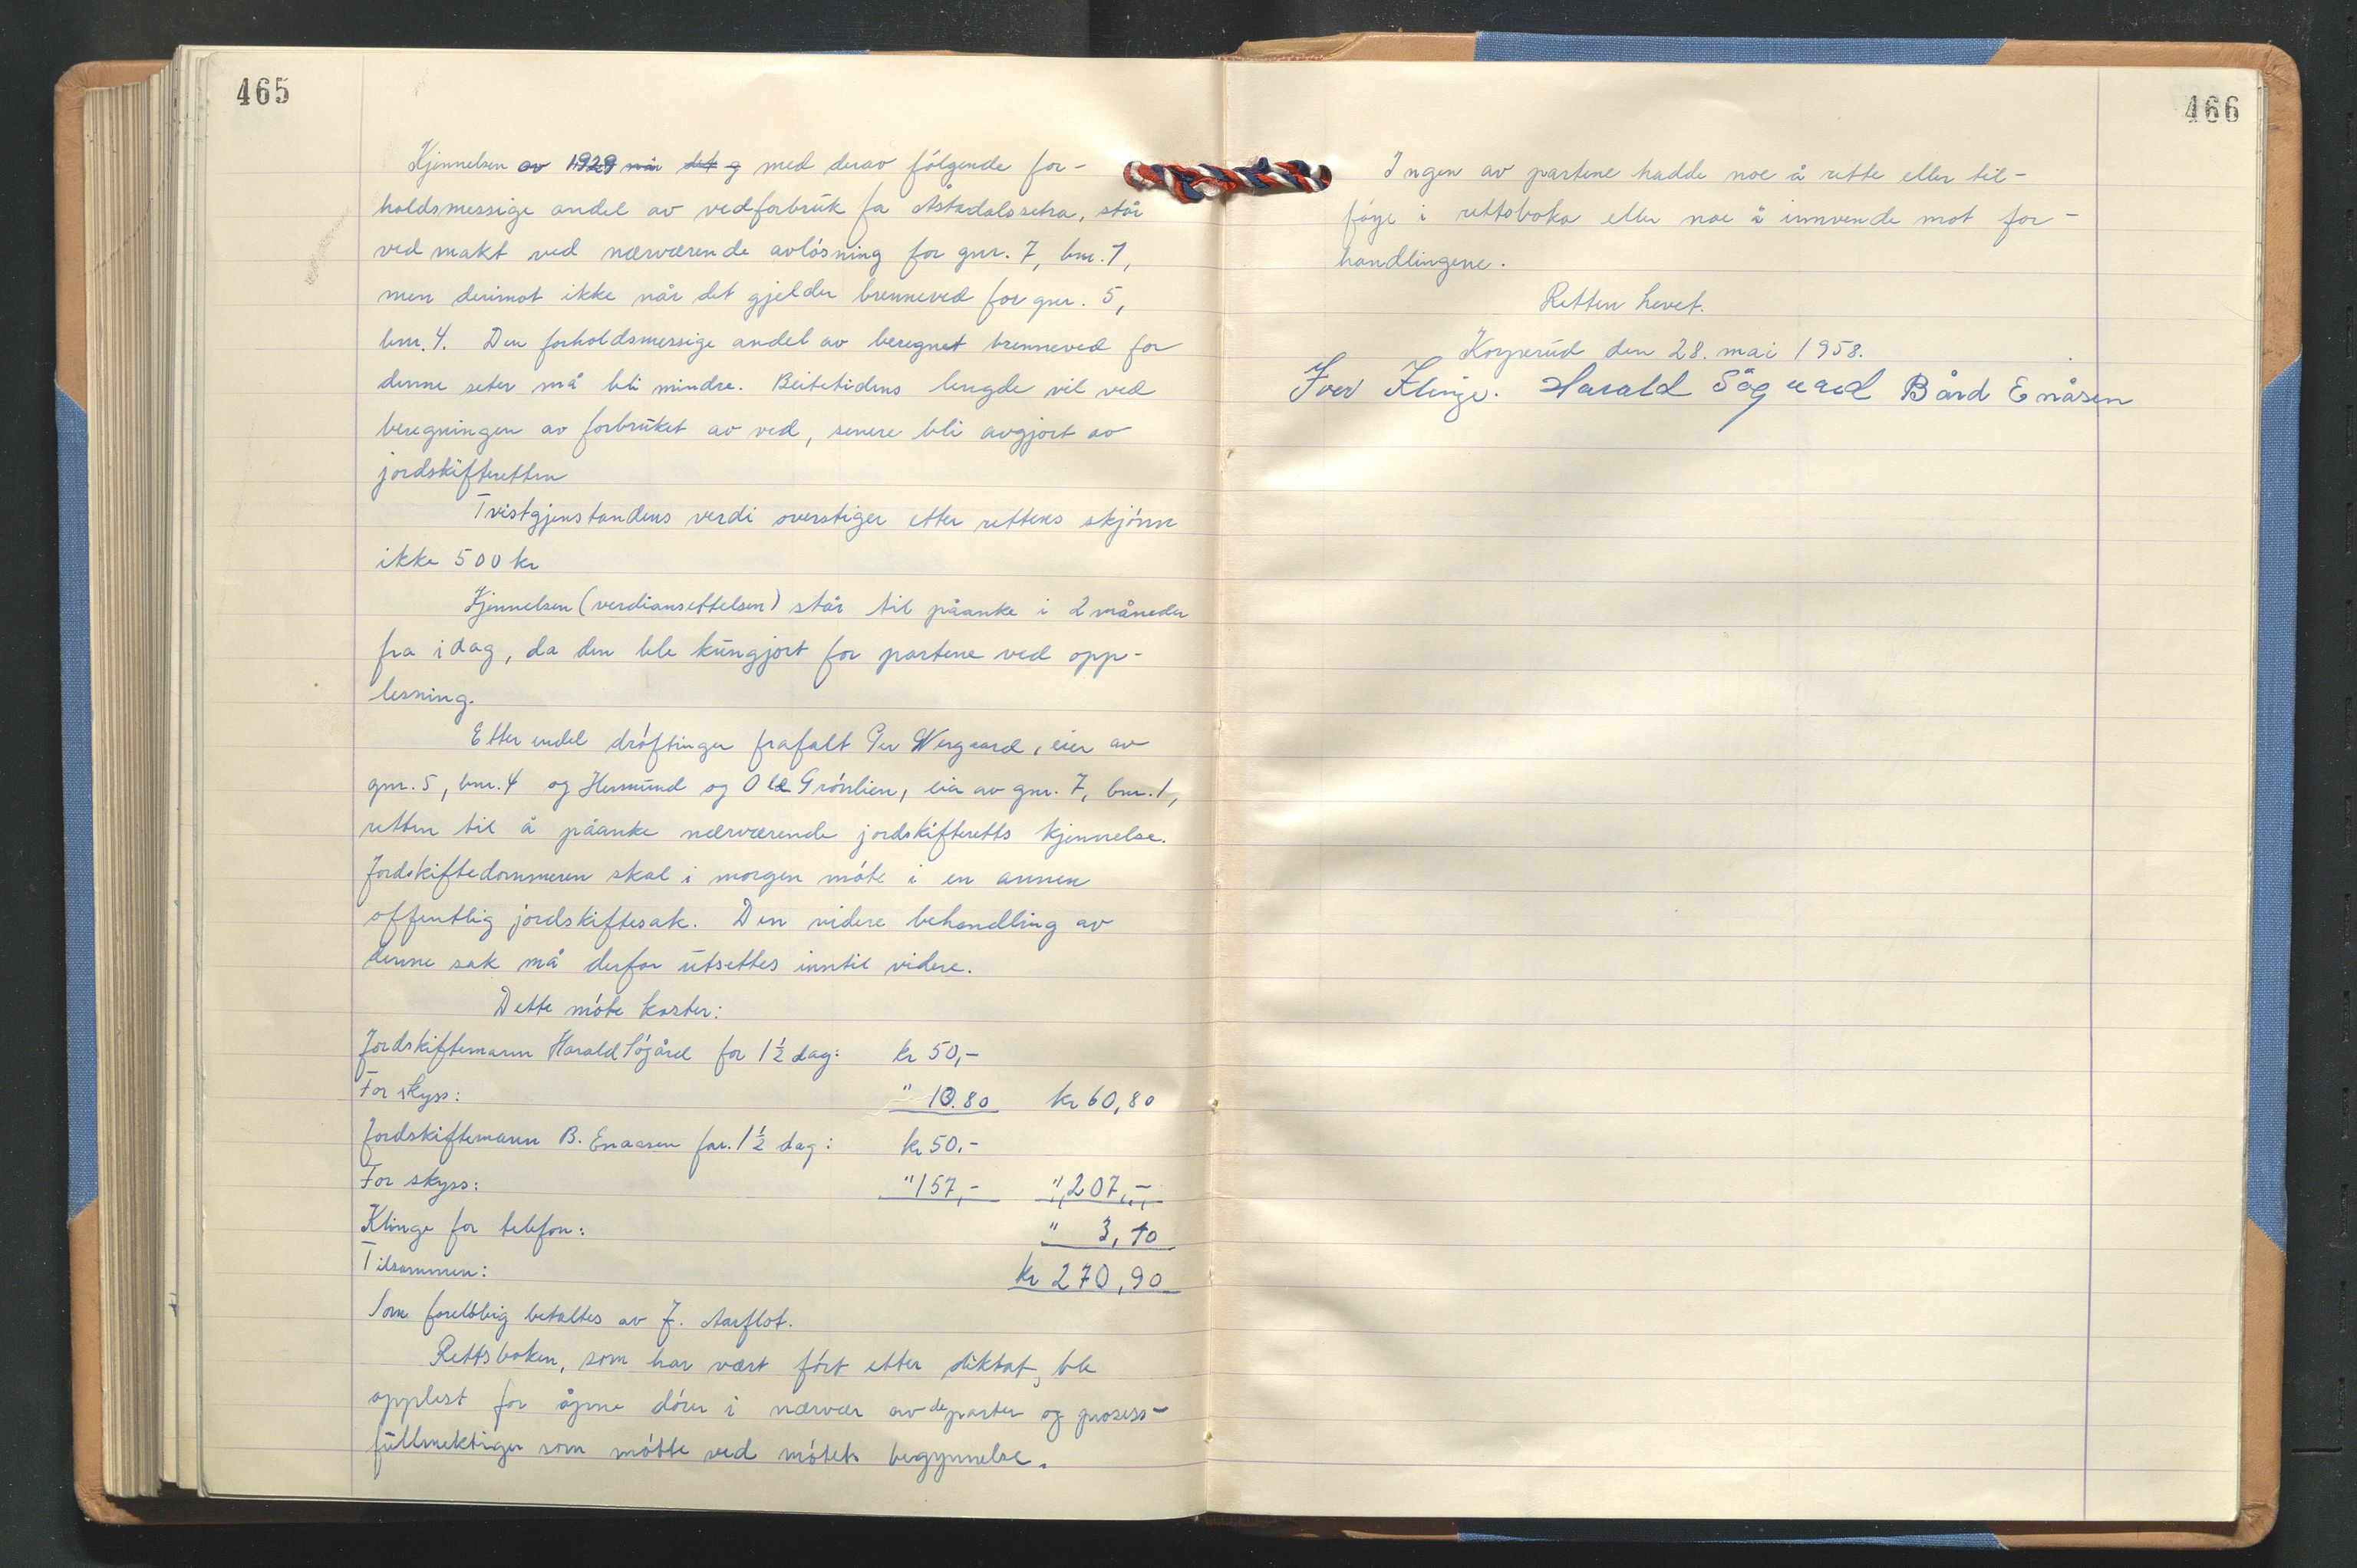 465
Kjennelsen av 1929 når det g med derav følgende for-
holdsmessige andel av vedforbruk fra Åstadalssetra, står
ved makt ved nærværende avløsning for gnr. 7, bnr. 1,
men derimot ikke når det gjelder brenneved for gnr. 5,
bnr. 4. Den forholdsmessige andel av beregnet brenneved for
denne seter må bli mindre. Beitetidens lengde vil ved
beregningen av forbruket av ved, senere bli avgjort av
jordskifteretten
Tvistgjenstandens verdi overstiger etter rettens skjønn
ikke 500 kr
Kjennelsen (verdiansettelsen) står til påanke i 2 måneder
fra idag, da den ble kungjort for partene ved opp-
lesning.
Etter endel drøftinger frafalt Per Wergaard, eier av
gnr. 5, bnr. 4 og Hermund og Ole Grønlien, eier av gnr. 7, bnr. 1,
retten til å påanke nærværende jordskifteretts kjennelse.
Jordskiftedommeren skal i morgen møte i en annen
offentlig jordskiftesak. Den videre behandling av
denne sak må derfor utsettes inntil videre.
Dette møte koster:
Jordskiftemann Harald Søgård for 1½ dag: kr 50,-
For skyss: " 10.80 kr 60,80
Jordskiftemann B. Enaasen for. 1½ dag: kr 50.-
For skyss: " 157,- " 207,-
Klinge for telefon: " 3,10
Tilsammen: kr 270,90
Som foreløbig betaltes av J. Aarflot.
Rettsboken, som har vært ført etter diktat, ble
opplest for åpne dører i nærvær av de parter og prosess-
fullmektiger som møtte ved møtets begynnelse.
466
Ingen av partene hadde noe å rette eller til-
føye i rettsboka eller noe å innvende mot for-
handlingene.
Retten hevet.
Korperud den 28. mai 1958.
Iver Klinge. Harald Søgaard Bård Enåsen